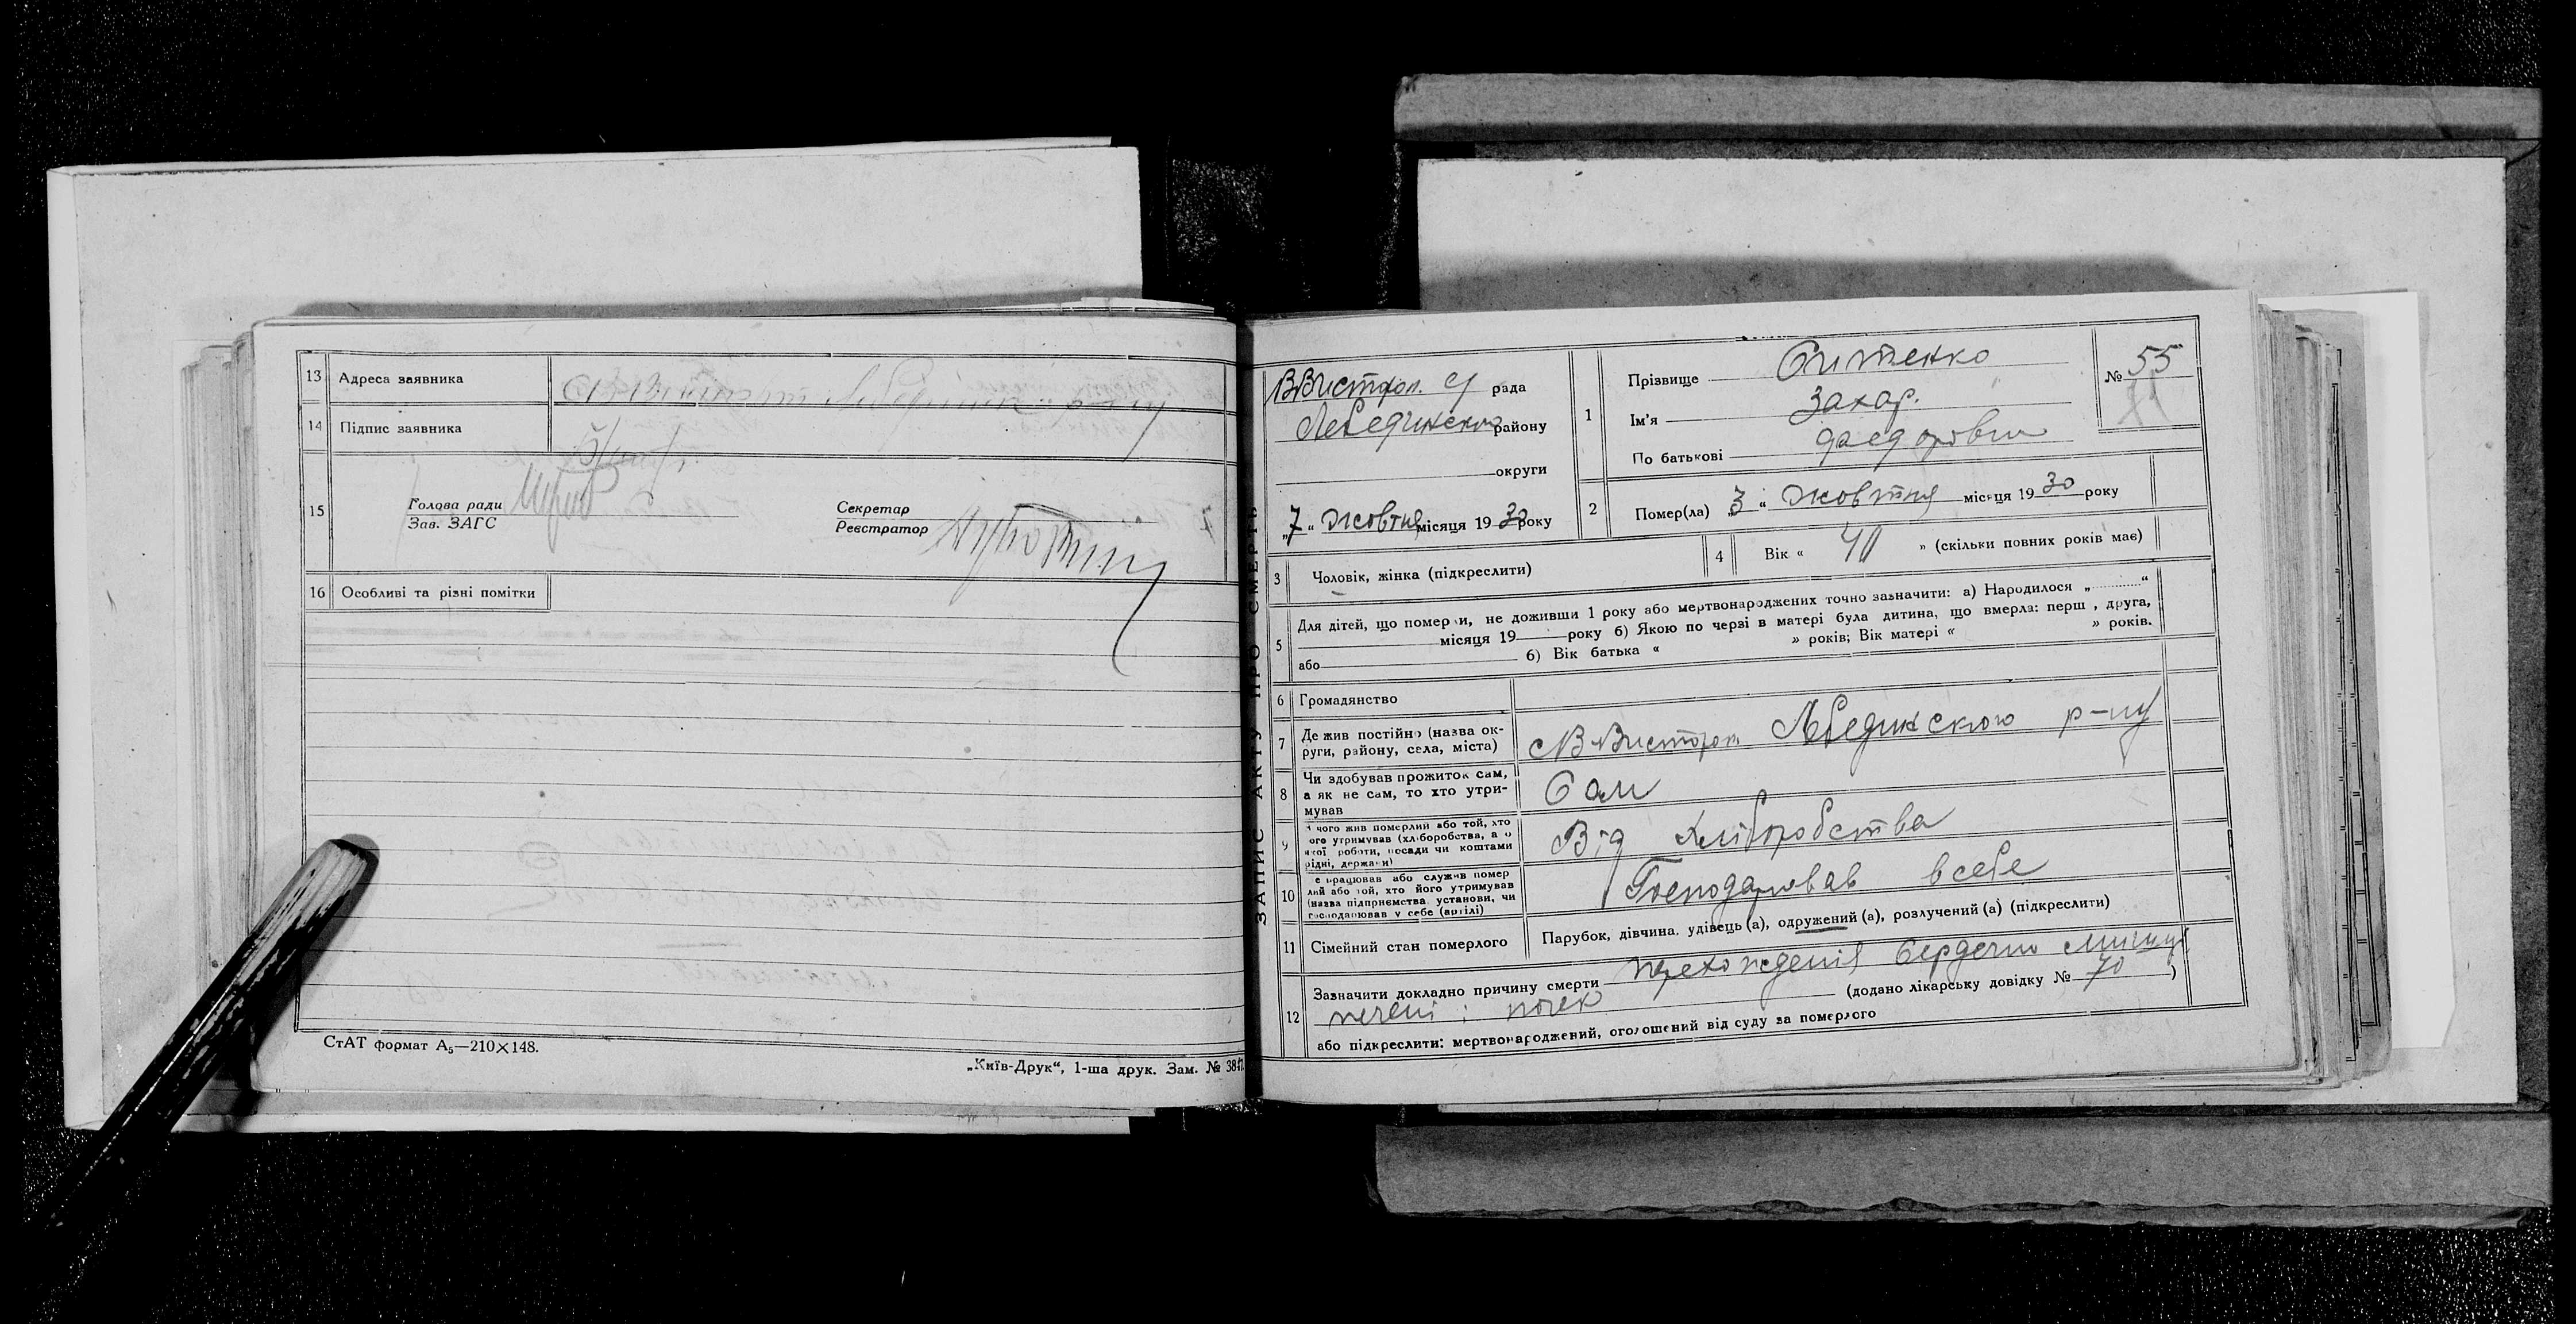 13 Адреса заявника
14 Підпис заявника
15 Голова ради
Зав. ЗАГС
Секретар
Реєстратор
16 Особливі та різні помітки
СтАТ формат А₅—210×148.
„Київ-Друк“, 1-ша друк. Зам. № 3847.
ЗАПИС АКТУ ПРО СМЕРТЬ
рада
Лебединського району
округи
„7“ Жовтня місяця 1930 року
1 Прізвище Ситенко
Ім'я Захар.
По батькові
№ 55
2 Помер(ла) „3“ Жовтня місяця 1930 року
3 Чоловік, жінка (підкреслити)
4 Вік « » (скільки повних років має)
5 Для дітей, що померли, не доживши 1 року або мертвонароджених точно зазначити: а) Народилося „ “
місяця 19 року б) Якою по черзі в матері була дитина, що вмерла: перш , друга,
або б) Вік батька « » років; Вік матері « » років.
6 Громадянство
7 Де жив постійно (назва ок-
руги, району, села, міста) Лебединського р-ну
8 Чи здобував прожиток сам,
а як не сам, то хто утри-
мував Сам
9 чого жив померлий або той, хто
ого утримував (хліборобства, а о
якої роботи, посади чи коштами
рідні, держави) Від хліборобства
10 е працював або служив помер
лий або той, хто його утримував
(назва підприємства, установи, чи
господарював у себе (артілі) Господарював всебе
11 Сімейний стан померлого Парубок, дівчина, удівець (а), одружений (а), розлучений (а) (підкреслити)
12 Зазначити докладно причину смерти
печені і почек (додано лікарську довідку № 70 )
або підкреслити: мертвонароджений, оголошений від суду за померлого